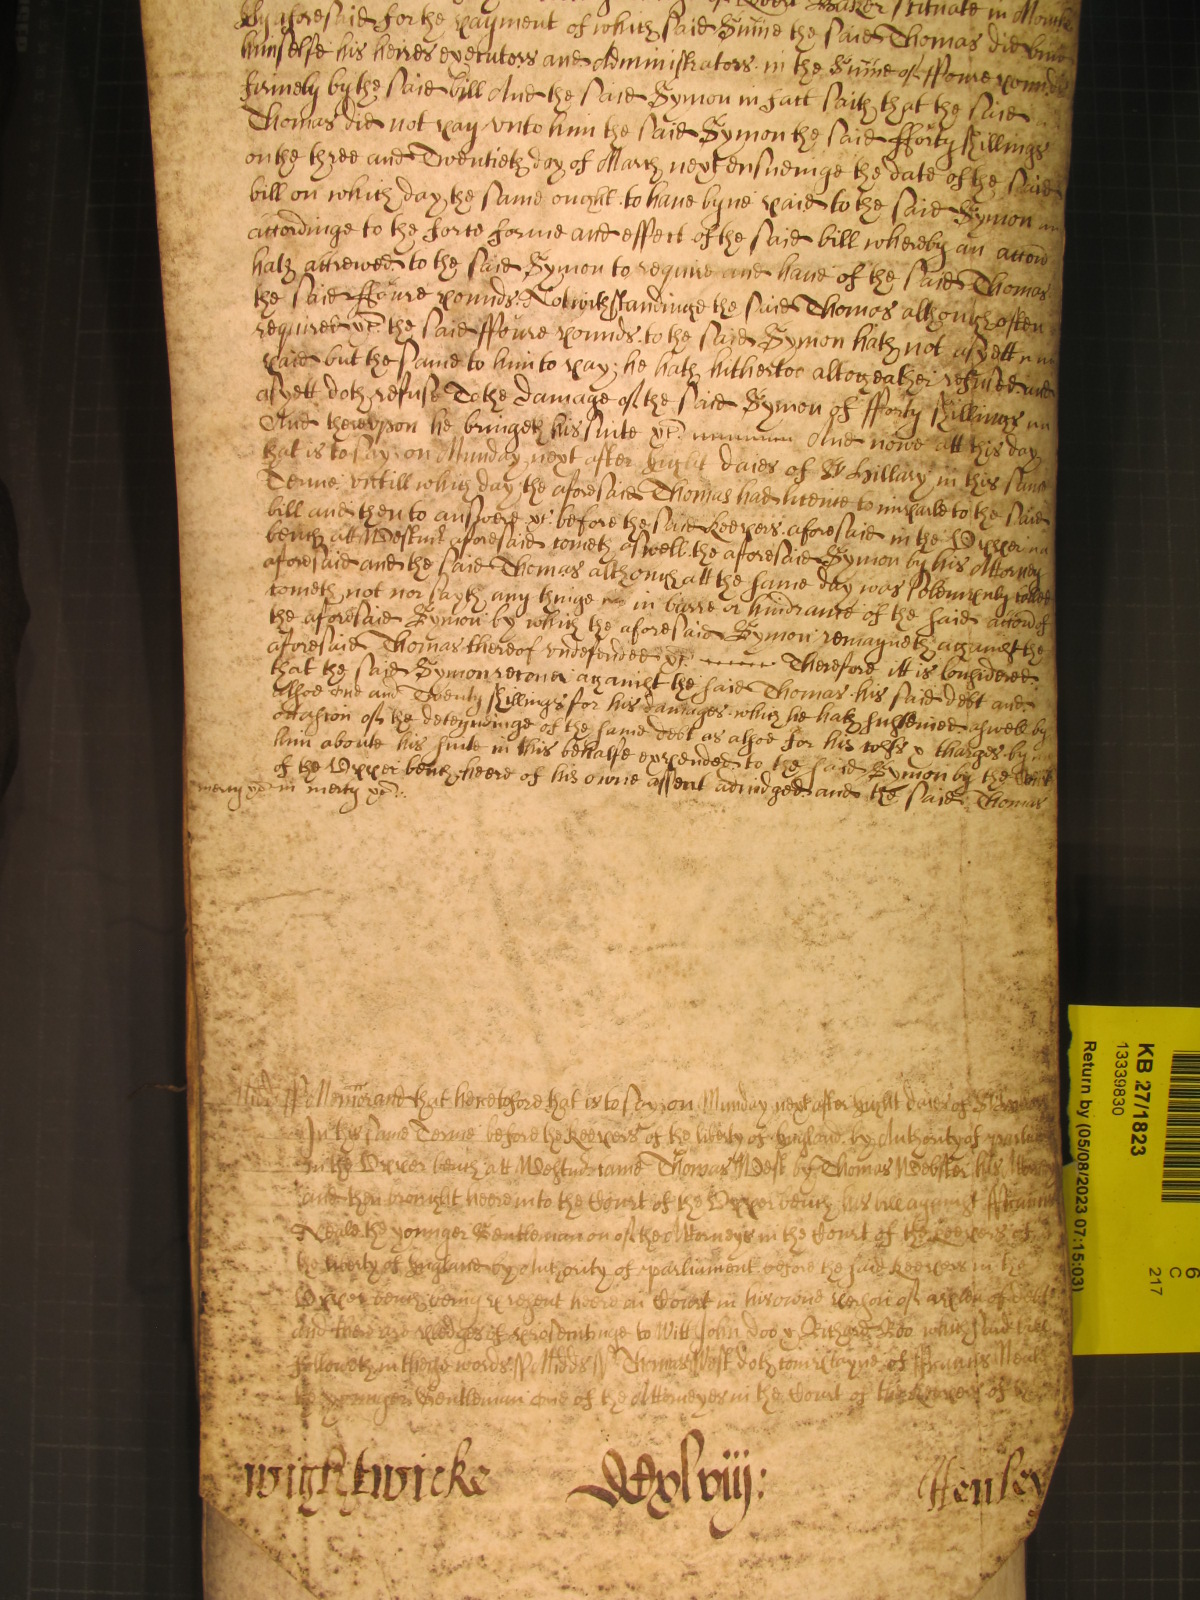 aforesaid for the payment of which said Sume the said Thomas did bind
himselfe his heires executors and Administrators in the Sume of ffoure pounds
firmely by the said bill And the said Symon in fact saith that the said
Thomas did not pay vnto him the said Symon the said fforty shillings
on the three and Twentieth day of March next ensueinge the date of the said
bill on which day the same ought to have byne paid to the said Symon
accordinge to the force forme and effect of the said bill whereby an accon
hath accrewed to the said Symon to require and have of the said Thomas
the said ffoure pounds Notwithstandinge the said Thomas although often
required &c the said ffoure pounds to the said Symon hath not as yett
paid but the same to him to pay he hath hithertoo altogeather refused and
as yett doth refuse To the damage of the said Symon of fforty shillings
And therevpon he bringeth his suite &c And nowe att this day
that is to say on Munday next after eight daies of St Hillary in this same
Terme vntill which day the aforesaid Thomas had licence to imparle to the said
bill and then to answere &c before the said keepers aforesaid in the Vpper
bench att Westmr aforesaid cometh aswell the aforesaid Symon by his Attorney
aforesaid and the said Thomas although att the same day was solempnly called
cometh not nor sayth any thinge in barre or hindrance of the said accon of
the aforesaid Symon by which the aforesaid Symon remayneth against the
aforesaid Thomas thereof vndefended &c Therefore itt is considered
that the said Symon recover against the said Thomas his said debt and
alsoe one and Twenty shillings for his damages which he hath susteined aswell by
occasion of the deteyninge of the same debt as alsoe for his costs & charges by
him aboute his suite in this behalfe expended to the said Symon by the Court
of the Vpper bench heere of his owne assent adiudged and the said Thomas
mercy &c in mercy &c
Midd ss Memorand that heretofore that is to say on Munday next after eight daies of St
In this same Terme before the keepers of the liberty of England by Authority of
In the Vpper bench att Westmr came Thomas West by Thomas Webster his Attorney
and then brought heere into the Court of the Vpper bench his bill against ffrancis
Neale the younger Gentleman on of the Attorneys in the Court of the keepers of
the liberty of England by Authority of parliament before the said keepers in the
Vpper bench being present heere in Court in his owne person of a plea of debt
And there are pledges of prosecutinge to Witt John Doo & Richard Roo which said bill
followeth in theise words ss Midds ss Thomas West doth complayne of ffrancis Neale
the younger Gentleman one of the Attorneyes in the Court of the keepers of
Wightwicke CCxlviij: Hensley
KB 27/1823
13339830
Return by (05/08/2023 07:15:03)
6
C
217